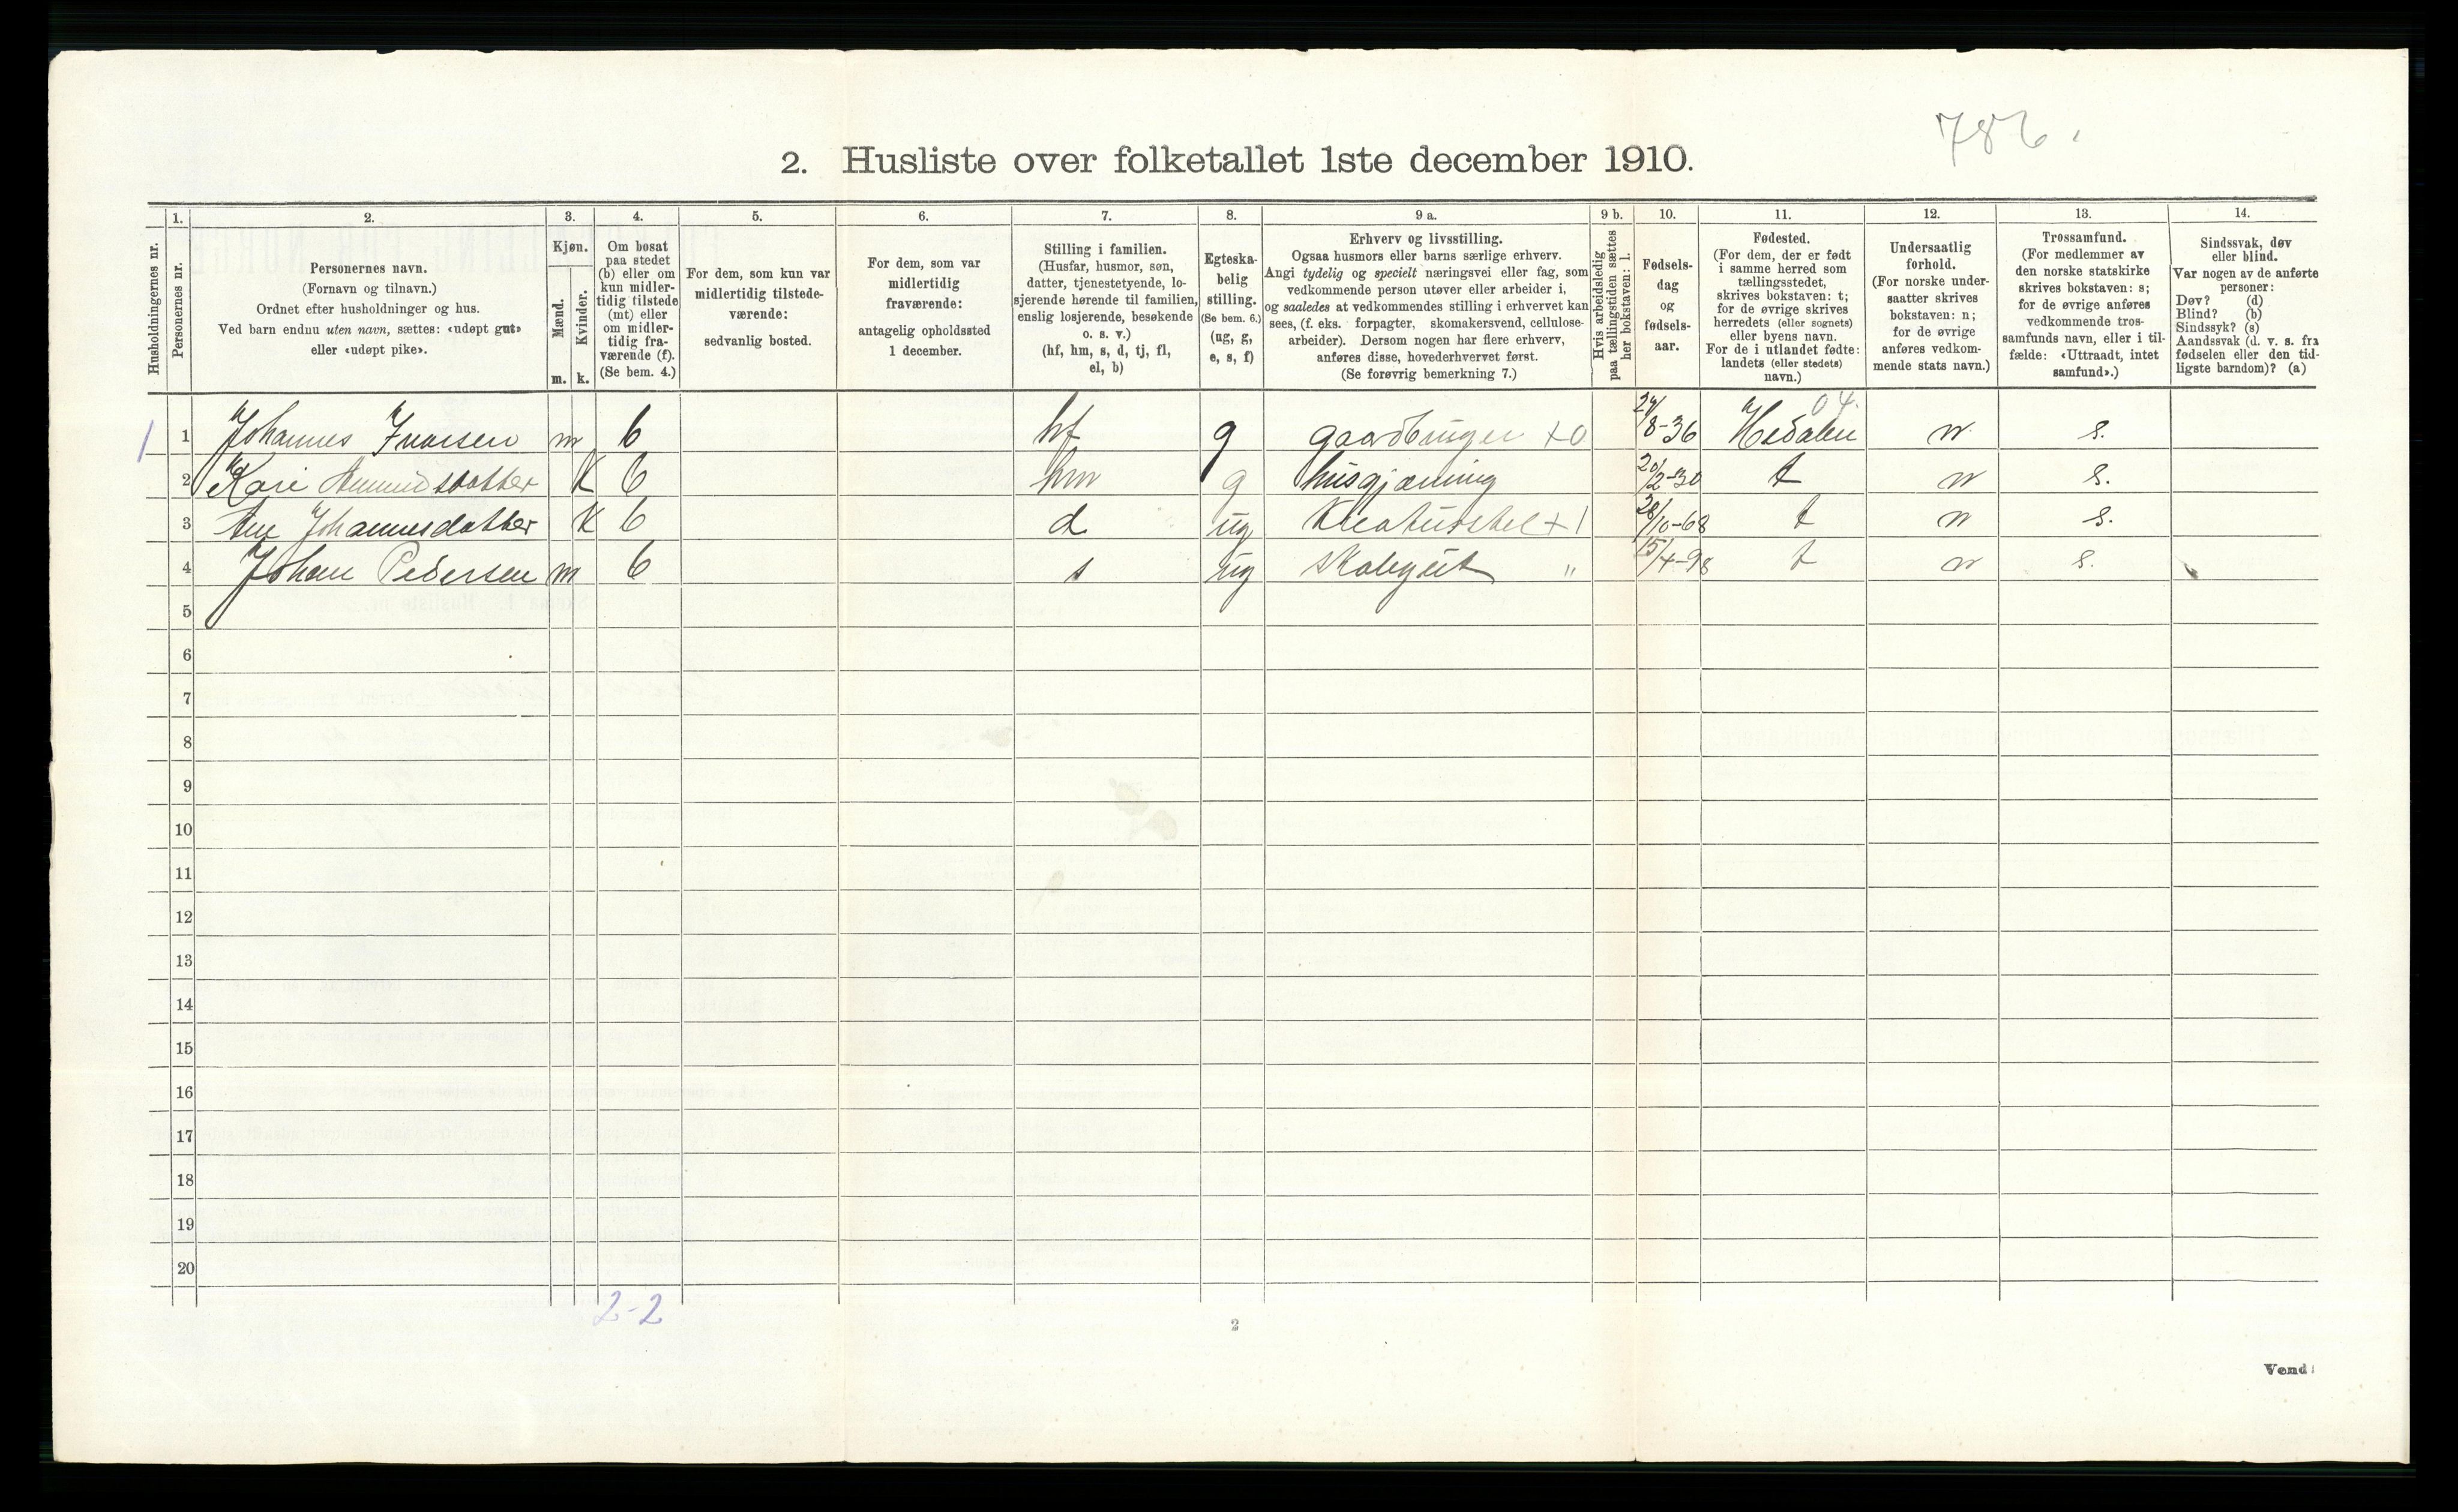 786.
2. Husliste over folketallet 1ste december 1910.
Husholdningernes nr.
1. Personernes nr.
2. Personernes navn.
(Fornavn og tilnavn.)
Ordnet efter husholdninger og hus.
Ved barn endnu uten navn, sættes: «udøpt gut»
eller «udøpt pike».
3. Kjøn.
Mænd. m.
Kvinder. k.
4. Om bosat
paa stedet
(b) eller om
kun midler-
tidig tilstede
(mt) eller
om midler-
tidig fra-
værende (f).
(Se bem. 4.)
5. For dem, som kun var
midlertidig tilstede-
værende:
sedvanlig bosted.
6. For dem, som var
midlertidig
fraværende:
antagelig opholdssted
1 december.
7. Stilling i familien.
(Husfar, husmor, søn,
datter, tjenestetyende, lo-
sjerende hørende til familien,
enslig losjerende, besøkende
o. s. v.)
(hf, hm, s, d, tj, fl,
el, b)
8. Egteska-
belig
stilling.
(Se bem. 6.)
(ug, g,
e, s, f)
9 a. Erhverv og livsstilling.
Ogsaa husmors eller barns særlige erhverv.
Angi tydelig og specielt næringsvei eller fag, som
vedkommende person utøver eller arbeider i,
og saaledes at vedkommendes stilling i erhvervet kan
sees, (f. eks. forpagter, skomakersvend, cellulose-
arbeider). Dersom nogen har flere erhverv,
anføres disse, hovederhvervet først.
(Se forøvrig bemerkning 7.)
9 b. Hvis arbeidsledig
paa tællingstiden sættes
her bokstaven: l.
10. Fødsels-
dag
og
fødsels-
aar.
11. Fødested.
(For dem, der er født
i samme herred som
tællingsstedet,
skrives bokstaven: t;
for de øvrige skrives
herredets (eller sognets)
eller byens navn.
For de i utlandet fødte:
landets (eller stedets)
navn.)
12. Undersaatlig
forhold.
(For norske under-
saatter skrives
bokstaven: n;
for de øvrige
anføres vedkom-
mende stats navn.)
13. Trossamfund.
(For medlemmer av
den norske statskirke
skrives bokstaven: s;
for de øvrige anføres
vedkommende tros-
samfunds navn, eller i til-
fælde: «Uttraadt, intet
samfund».)
14. Sindssvak, døv
eller blind.
Var nogen av de anførte
personer:
Døv? (d)
Blind? (b)
Sindssyk? (s)
Aandssvak (d. v. s. fra
fødselen eller den tid-
ligste barndom)? (a)
1 1 Johannes Ivarsen m b hf g gaardbruger +0 24/8-36 Hedalen 04. n s.
2 Kari Amundsdatter K b hm g husgjerning 20/2-30 t n s.
3 Ane Johannesdatter K b d ug Kreaturstel +1 28/10-68 t n s.
4 Johan Pedersen m b s ug Skolegut " 15/4-98 t n s.
5
6
7
8
9
10
11
12
13
14
15
16
17
18
19
20
2-2
2
Vend!